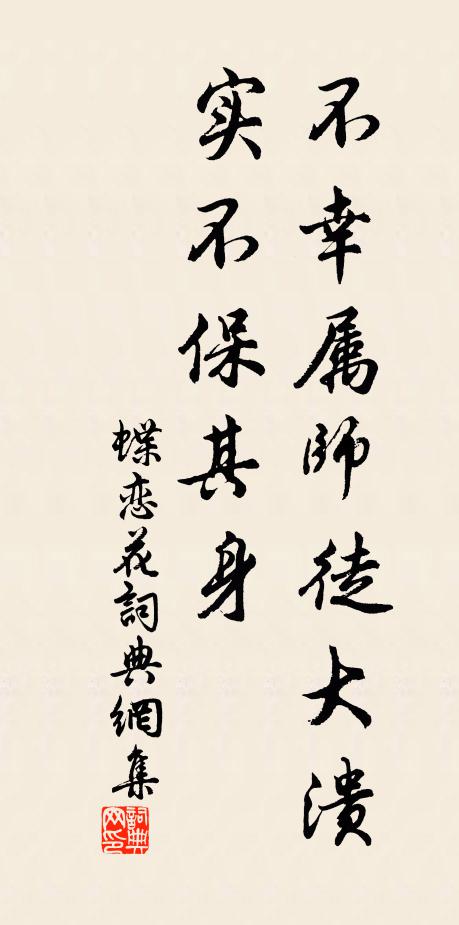 不幸属師徒大潰
实不保其身
蝶恋花詞典網集
詞典网印